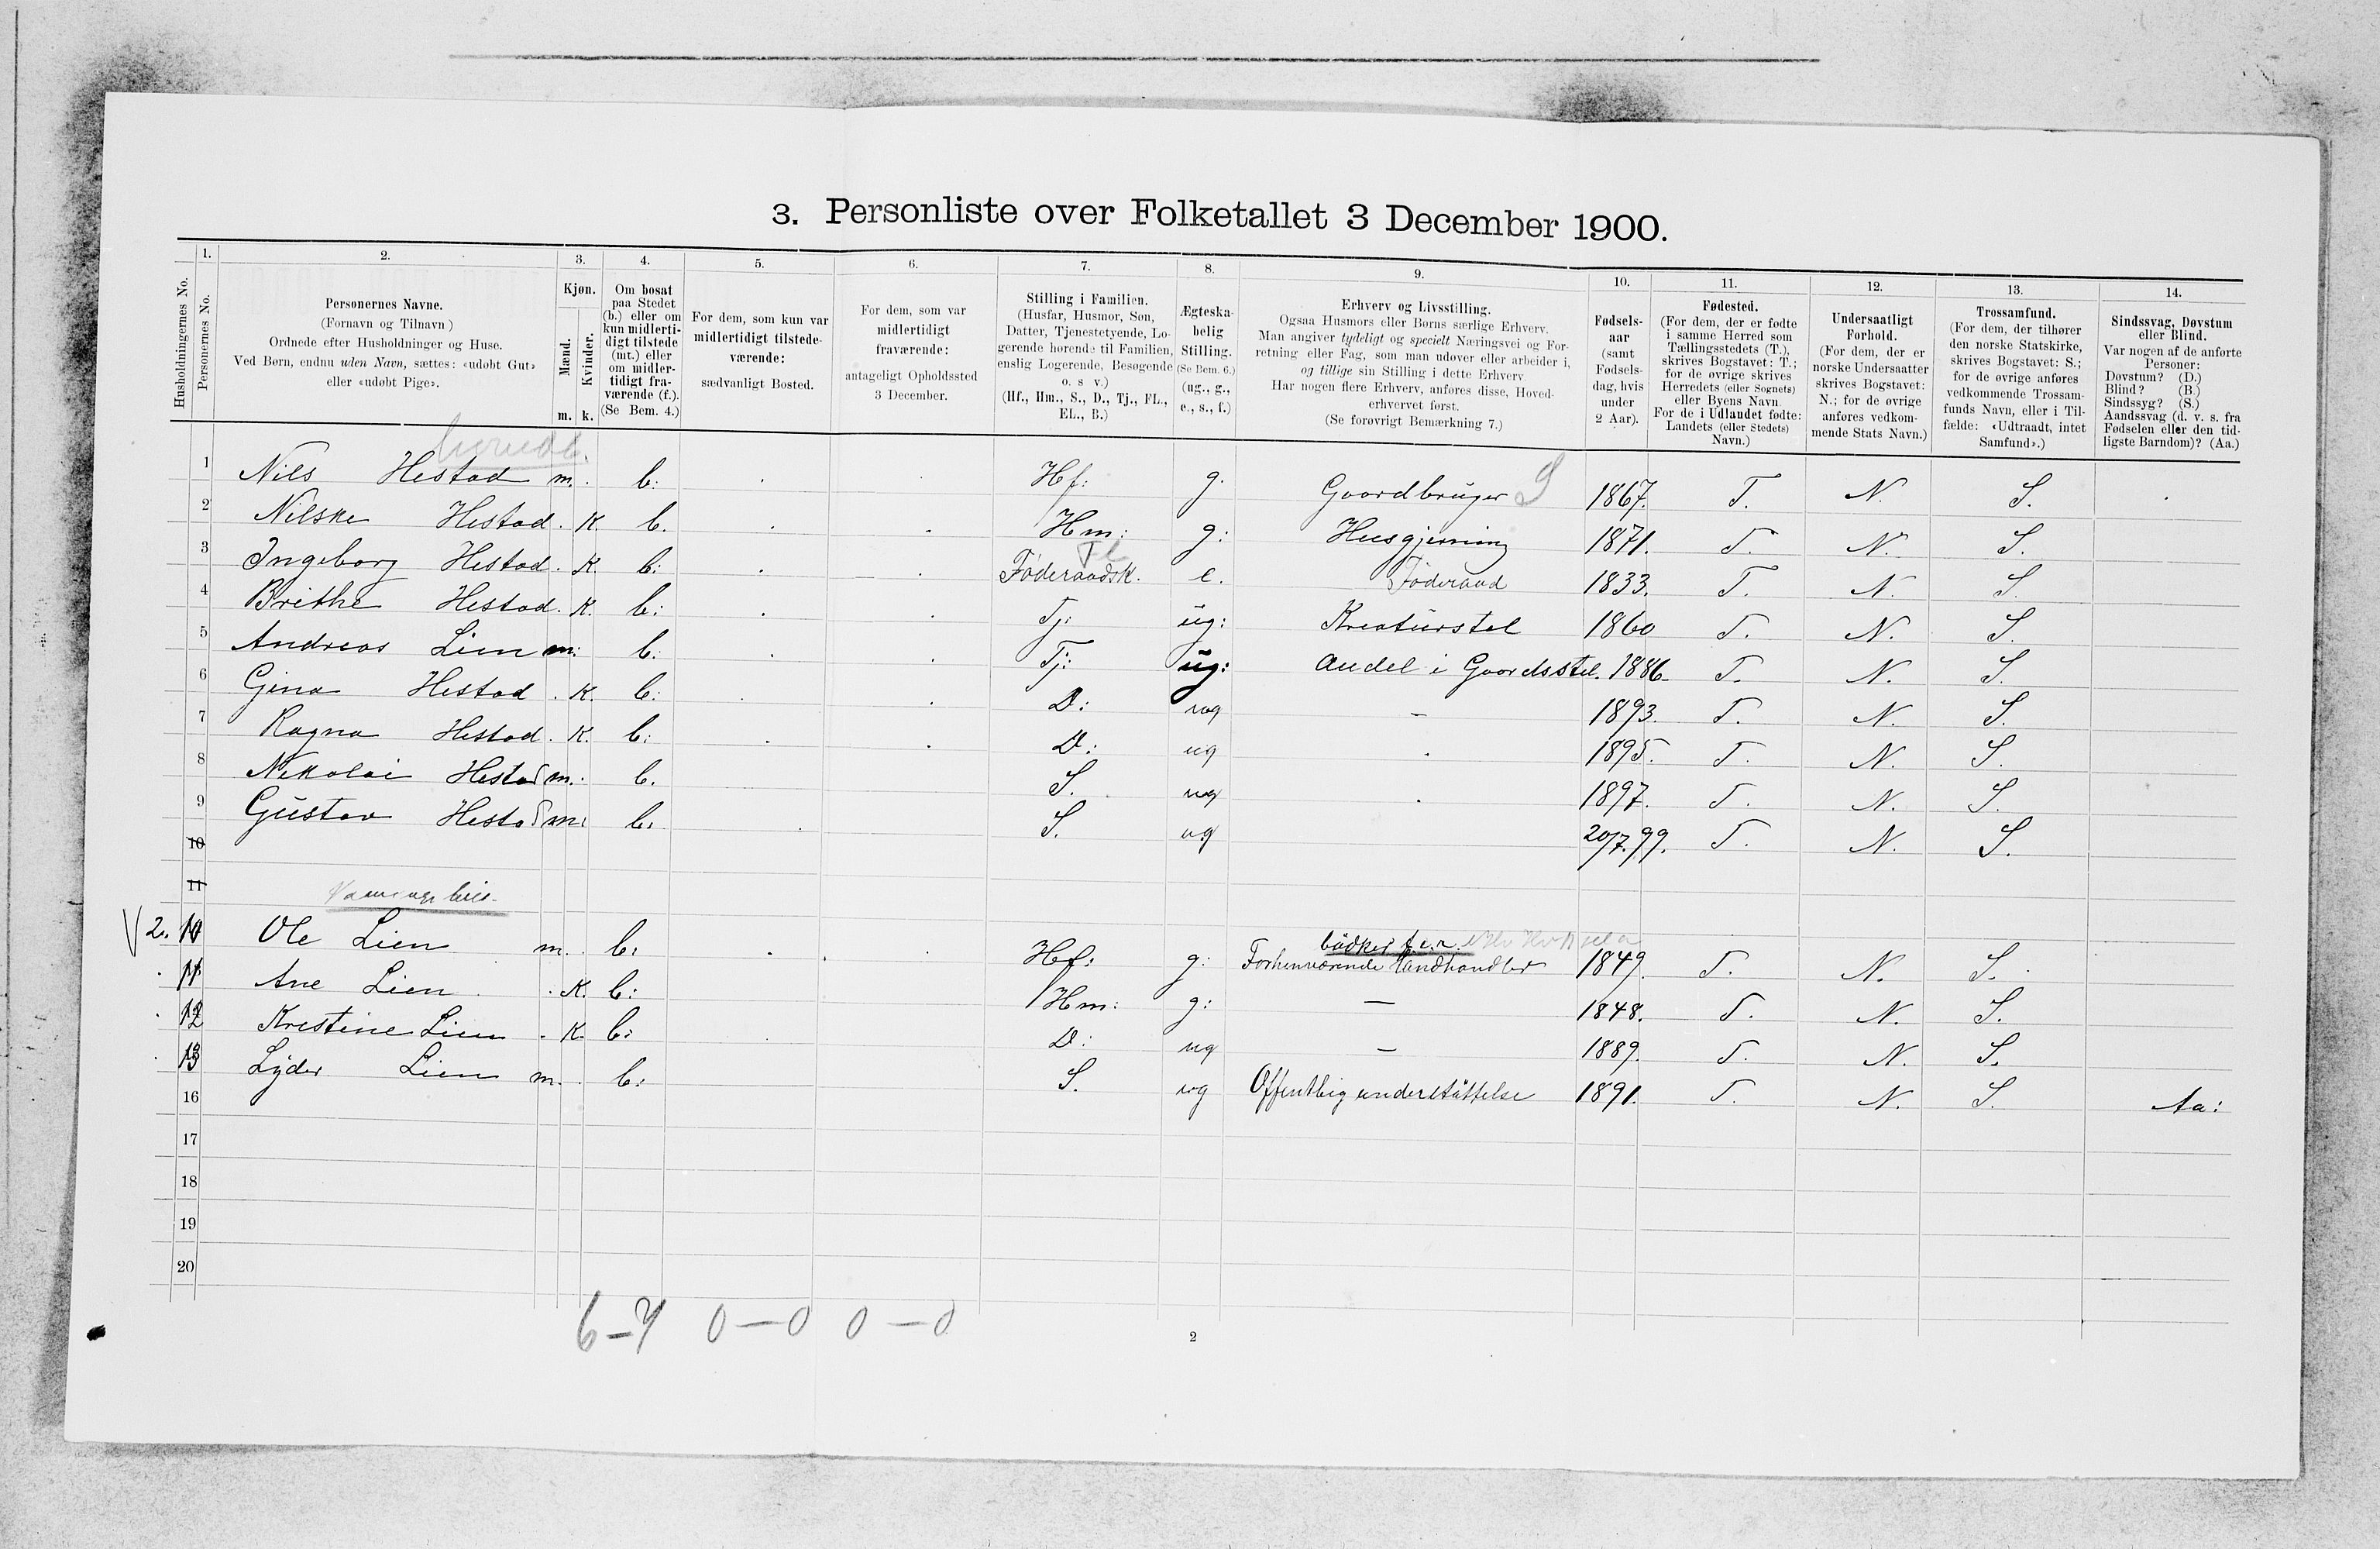 3. Personliste over Folketallet 3 December 1900.
Husholdningernes No.
1.
Personernes No.
2.
Personernes Navne.
(Fornavn og Tilnavn)
Ordnede efter Husholdninger og Huse.
Ved Børn, endnu uden Navn, sættes: «udøbt Gut»
eller «udøbt Pige».
3.
Kjøn.
Mænd.
Kvinder.
m. k.
4.
Om bosat
paa Stedet
(b.) eller om
kun midlerti-
digt tilstede
(mt.) eller
om midler-
tidigt fra-
værende (f.).
(Se Bem. 4.)
5.
For dem, som kun var
midlertidigt tilstede-
værende:
sædvanligt Bosted.
6.
For dem, som var
midlertidigt
fraværende:
antageligt Opholdssted
3 December.
7.
Stilling i Familien.
(Husfar, Husmor, Søn,
Datter, Tjenestetyende, Lo-
gerende hørende til Familien,
enslig Logerende, Besøgende
o. s v.)
(Hf., Hm., S., D., Tj., FL.,
EL., B.)
8.
Ægteska-
belig
Stilling.
(Se Bem. 6.)
(ug., g.,
e., s., f.)
9.
Erhverv og Livsstilling.
Ogsaa Husmors eller Børns særlige Erhverv.
Man angiver tydeligt og specielt Næringsvei og For-
retning eller Fag, som man udøver eller arbeider i,
og tillige sin Stilling i dette Erhverv
Har nogen flere Erhverv, anføres disse, Hoved-
erhvervet først.
(Se forøvrigt Bemærkning 7.)
10.
Fødsels-
aar
(samt
Fødsels-
dag, hvis
under
2 Aar).
11.
Fødested.
(For dem, der er fødte
i samme Herred som
Tællingsstedets (T.),
skrives Bogstavet: T.;
for de øvrige skrives
Herredets (eller Sognets)
eller Byens Navn.
For de i Udlandet fødte:
Landets (eller Stedets)
Navn.)
12.
Undersaatligt
Forhold.
(For dem, der er
norske Undersaatter
skrives Bogstavet:
N.; for de øvrige
anføres vedkom-
mende Stats Navn.)
13.
Trossamfund.
(For dem, der tilhører
den norske Statskirke,
skrives Bogstavet: S.;
for de øvrige anføres
vedkommende Trossam-
funds Navn, eller i Til-
fælde: «Udtraadt, intet
Samfund».)
14.
Sindssvag, Døvstum
eller Blind.
Var nogen af de anførte
Personer:
Døvstum? (D.)
Blind? (B.)
Sindssyg? (S.)
Aandssvag (d. v. s. fra
Fødselen eller den tid-
ligste Barndom)? (Aa.)
1 Nils Hestad m. b. Hf: g. Gaardbruger S 1867. T. N. S.
2 Nilske Hestad . K. b. Hm: g: Husgjerning 1871. T. N. S.
3 Ingeborg Hestad . K. b: Föderaadsk. e. Föderaad 1833. T. N. S.
4 Brithe Hestad . K. b: Tj: ug: Kreaturstel 1860 T. N. S.
5 Andreas Lien m: b: Tj: ug: Andel i Gaardsstel. 1886. T. N. S.
6 Gina Hestad . K. b: D: ug – 1893. T. N. S.
7 Ragna Hestad . K. b: D: ug 1895. T. N. S.
8 Nikolai Hestad m. b. S. ug 1897. T. N. S.
9 Gustav Hestad m. b. S. ug 20/7.99. T. N. S.
10
11
bödker f. e. r.
2. 10 Ole Lien m. b: Hf: g: Forhenværende Landhandler 1849. T. N. S.
11 Ane Lien . K. b: Hm: g: – 1848. T. N. S.
12 Kristine Lien . K. b: D: ug – 1889. T. N. S.
13 Lyder Lien m. b: S. ug Offentlig understüttelse 1891. T. N. S. Aa:
16
17
18
19
20
6–7 0–0 0–0
2